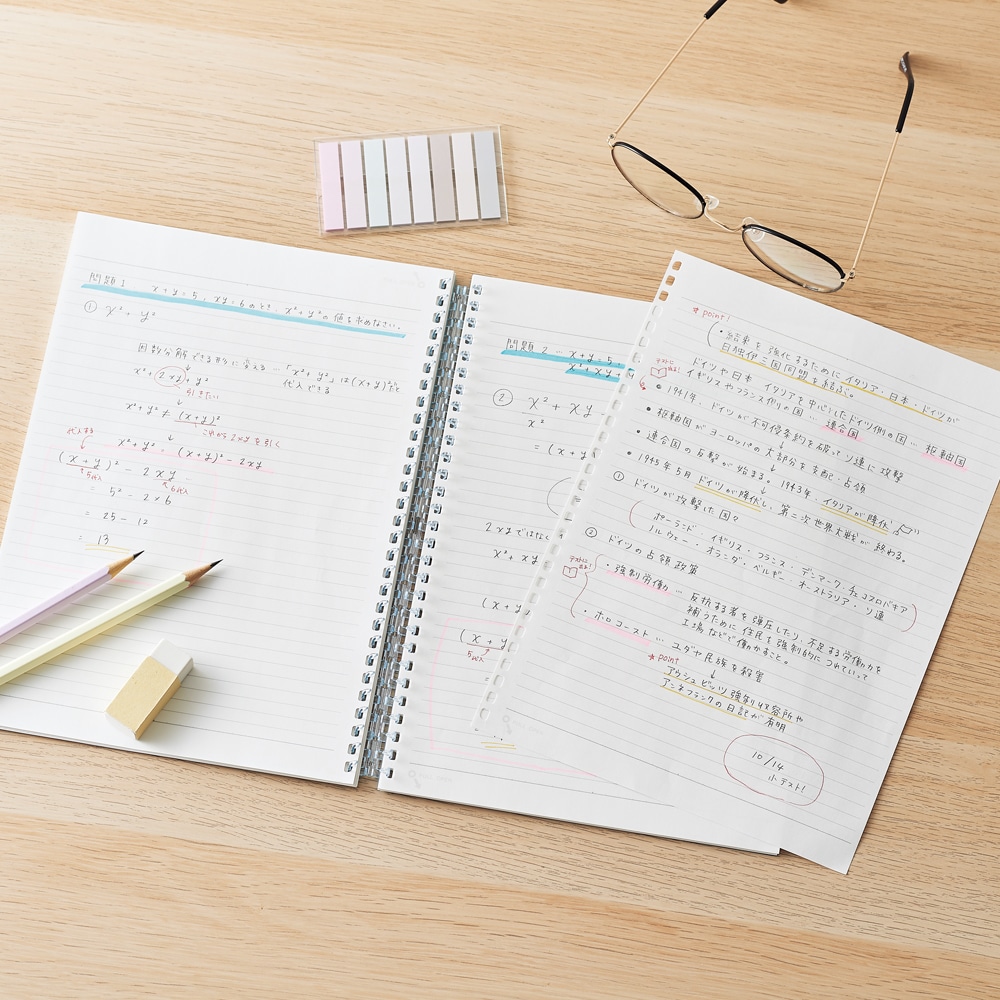 問題1 x+y=5、xy=6のとき、x²+y²の値を求めなさい。
① x²+y²
因数分解できる形に変える…「x²+y²」は(x+y)²に
代入できる
x²+2xy+y²
引きたい
x²+y² ≠ (x+y)²
これから2xyを引く
代入する
x²+y² = (x+y)²-2xy
(x+y)²-2xy
5代入
6代入
= 5²-2×6
= 25-12
= 13
問題2 x+y=5、
x²+xy+
② x²+xy
x²
= (x+y
2xyではなく
x²+xy
(x+y
(x+y
5代入
=
=
*point!
・結束を強化するためにイタリア・日本・ドイツが
日独伊三国同盟を結ぶ。
テストに出る!
ドイツや日本 イタリアを中心としたドイツ側の国… 枢軸国
イギリスやフランス側の国… 連合国
• 1941年、ドイツが不可侵条約を破ってソ連に攻撃
• 枢軸国がヨーロッパの大部分を支配・占領
• 連合国の反撃が始まる。1943年、イタリアが降伏
• 1945年5月 ドイツが降伏し、第二次世界大戦、終わる。
① ドイツが攻撃した国?
ポーランド・イギリス・フランス・デンマーク・チェコスロバキア
ノルウェー・オランダ・ベルギー・オーストラリア・ソ連
② ドイツの占領政策
テストに出る!
・強制労働… 反抗する者を弾圧したり、不足する労働力を
補うために住民を強制的につれていって
工場などで働かすこと。
・ホロコースト… ユダヤ民族を殺害
*point
アウシュビッツ強制収容所や
アンネフランクの日記が有明
10/14
小テスト!